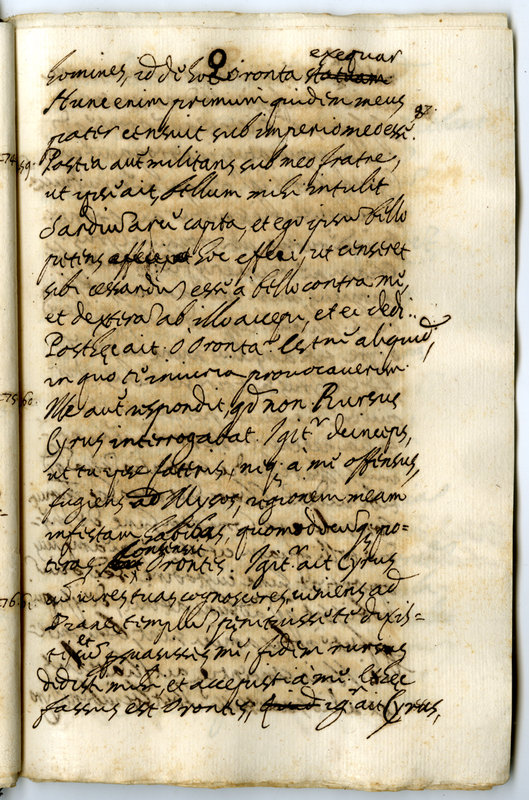 exequar
homines, id de hoc Oronta statuam
Hunc enim primum quidem meus
87.
pater censuit sub imperio meo esse.
74 59. Postea aut militans sub meo fratre,
ut ipse ait, bellum mihi intulit
Sardium arce capta, et ego ipsum bello
petens effeci, ut censeret
sibi cessandum esse a bello contra me,
et dexteram ab illo accepi, et ei dedi.
Postea ait. O Oronta. Est ne aliquid,
in quo te iniuria provocaverim.
75 60. Ille aut respondit, qd non. Rursus
Cyrus interrogabat. Igitr deinceps,
ut tu ipse fateris, neq a me offensus,
fugiens ad Mysos, regionem meam
infestam habebas, quomodocunq po-
consensit
teras. Orontes. Igitr ait Cyrus
76 61. vires tuas cognosceres, veniens ad
Dianae templum penituisse te dixis-
et
ti suasisses me, fidem rursus
dedisti mihi, et accepisti a me. Haec
fassus est Orontes, Quid igr ait Cyrus,